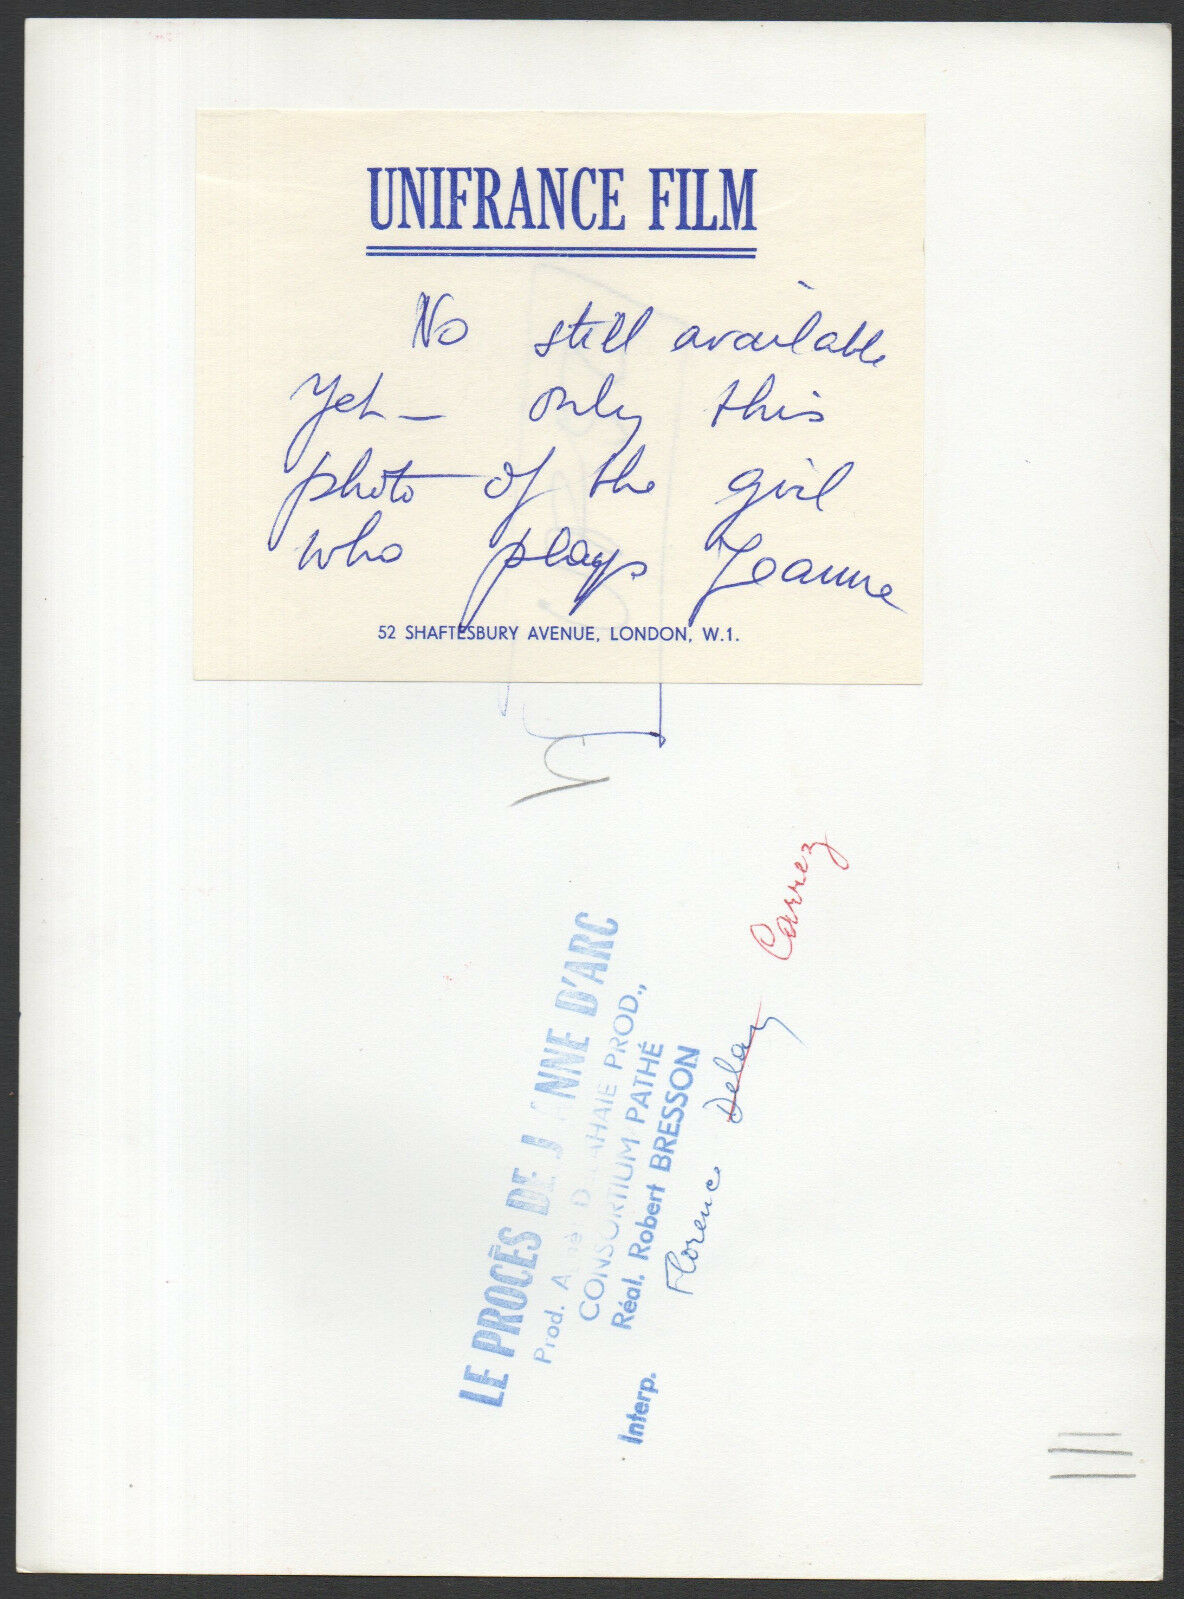 UNIFRANCE FILM
No still available
yet — only this
photo of the girl
who plays Jeanne
52 SHAFTESBURY AVENUE, LONDON, W.1.
LE PROCÈS DE J ANNE D'ARC
Prod. A né D LAHAIE PROD.,
CONSORTIUM PATHÉ
Réal. Robert BRESSON
Interp. Florence Delay Carrez